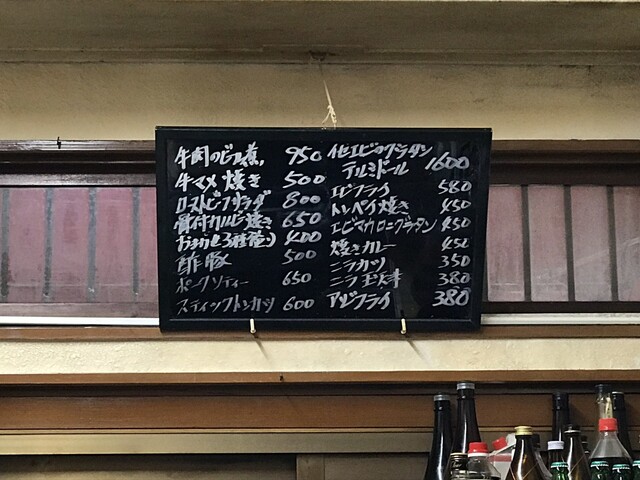 牛肉のビール煮 950
牛マメ焼き 500
ローストビーフサラダ 800
骨付カルビ焼き 650
おまかせ3種盛 400
酢豚 500
ポークソティー 650
スティックトンカツ 600
化エビのグラタン
テルミドール 1600
エビフライ 580
トンペイ焼き 450
エビマカロニグラタン 450
焼きカレー 450
ニラカツ 350
ニラ玉 380
アジフライ 380